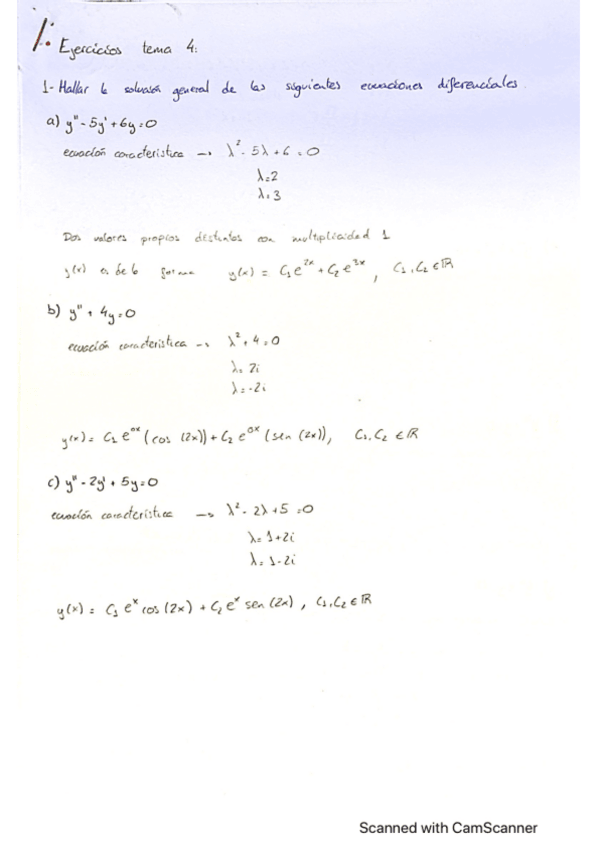 Ejercicios tema 4:
1- Hallar la solución general de las siguientes ecuaciones diferenciales.
a) y'' - 5y' + 6y = 0
ecuación característica → λ² - 5λ + 6 = 0
λ = 2
λ = 3
Dos valores propios distintos con multiplicidad 1
y(x) es de la forma y(x) = C₁e^{2x} + C₂e^{3x}, C₁, C₂ ∈ ℝ
b) y'' + 4y = 0
ecuación característica → λ² + 4 = 0
λ = 2i
λ = -2i
y(x) = C₁ e^{0x} (cos (2x)) + C₂ e^{0x} (sen (2x)), C₁, C₂ ∈ ℝ
c) y'' - 2y' + 5y = 0
ecuación característica → λ² - 2λ + 5 = 0
λ = 1 + 2i
λ = 1 - 2i
y(x) = C₁ e^x cos (2x) + C₂ e^x sen (2x), C₁, C₂ ∈ ℝ
Scanned with CamScanner